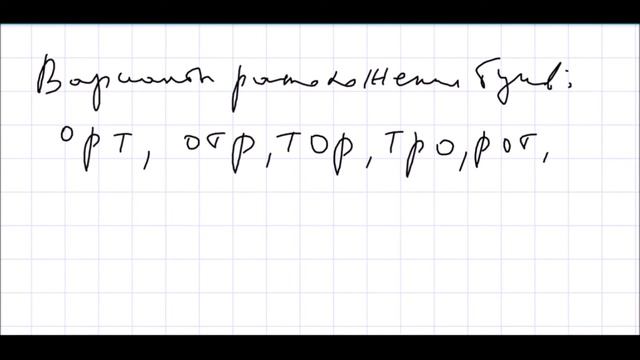 Варианты расположения букв:
орт, отр, тор, тро, рот,